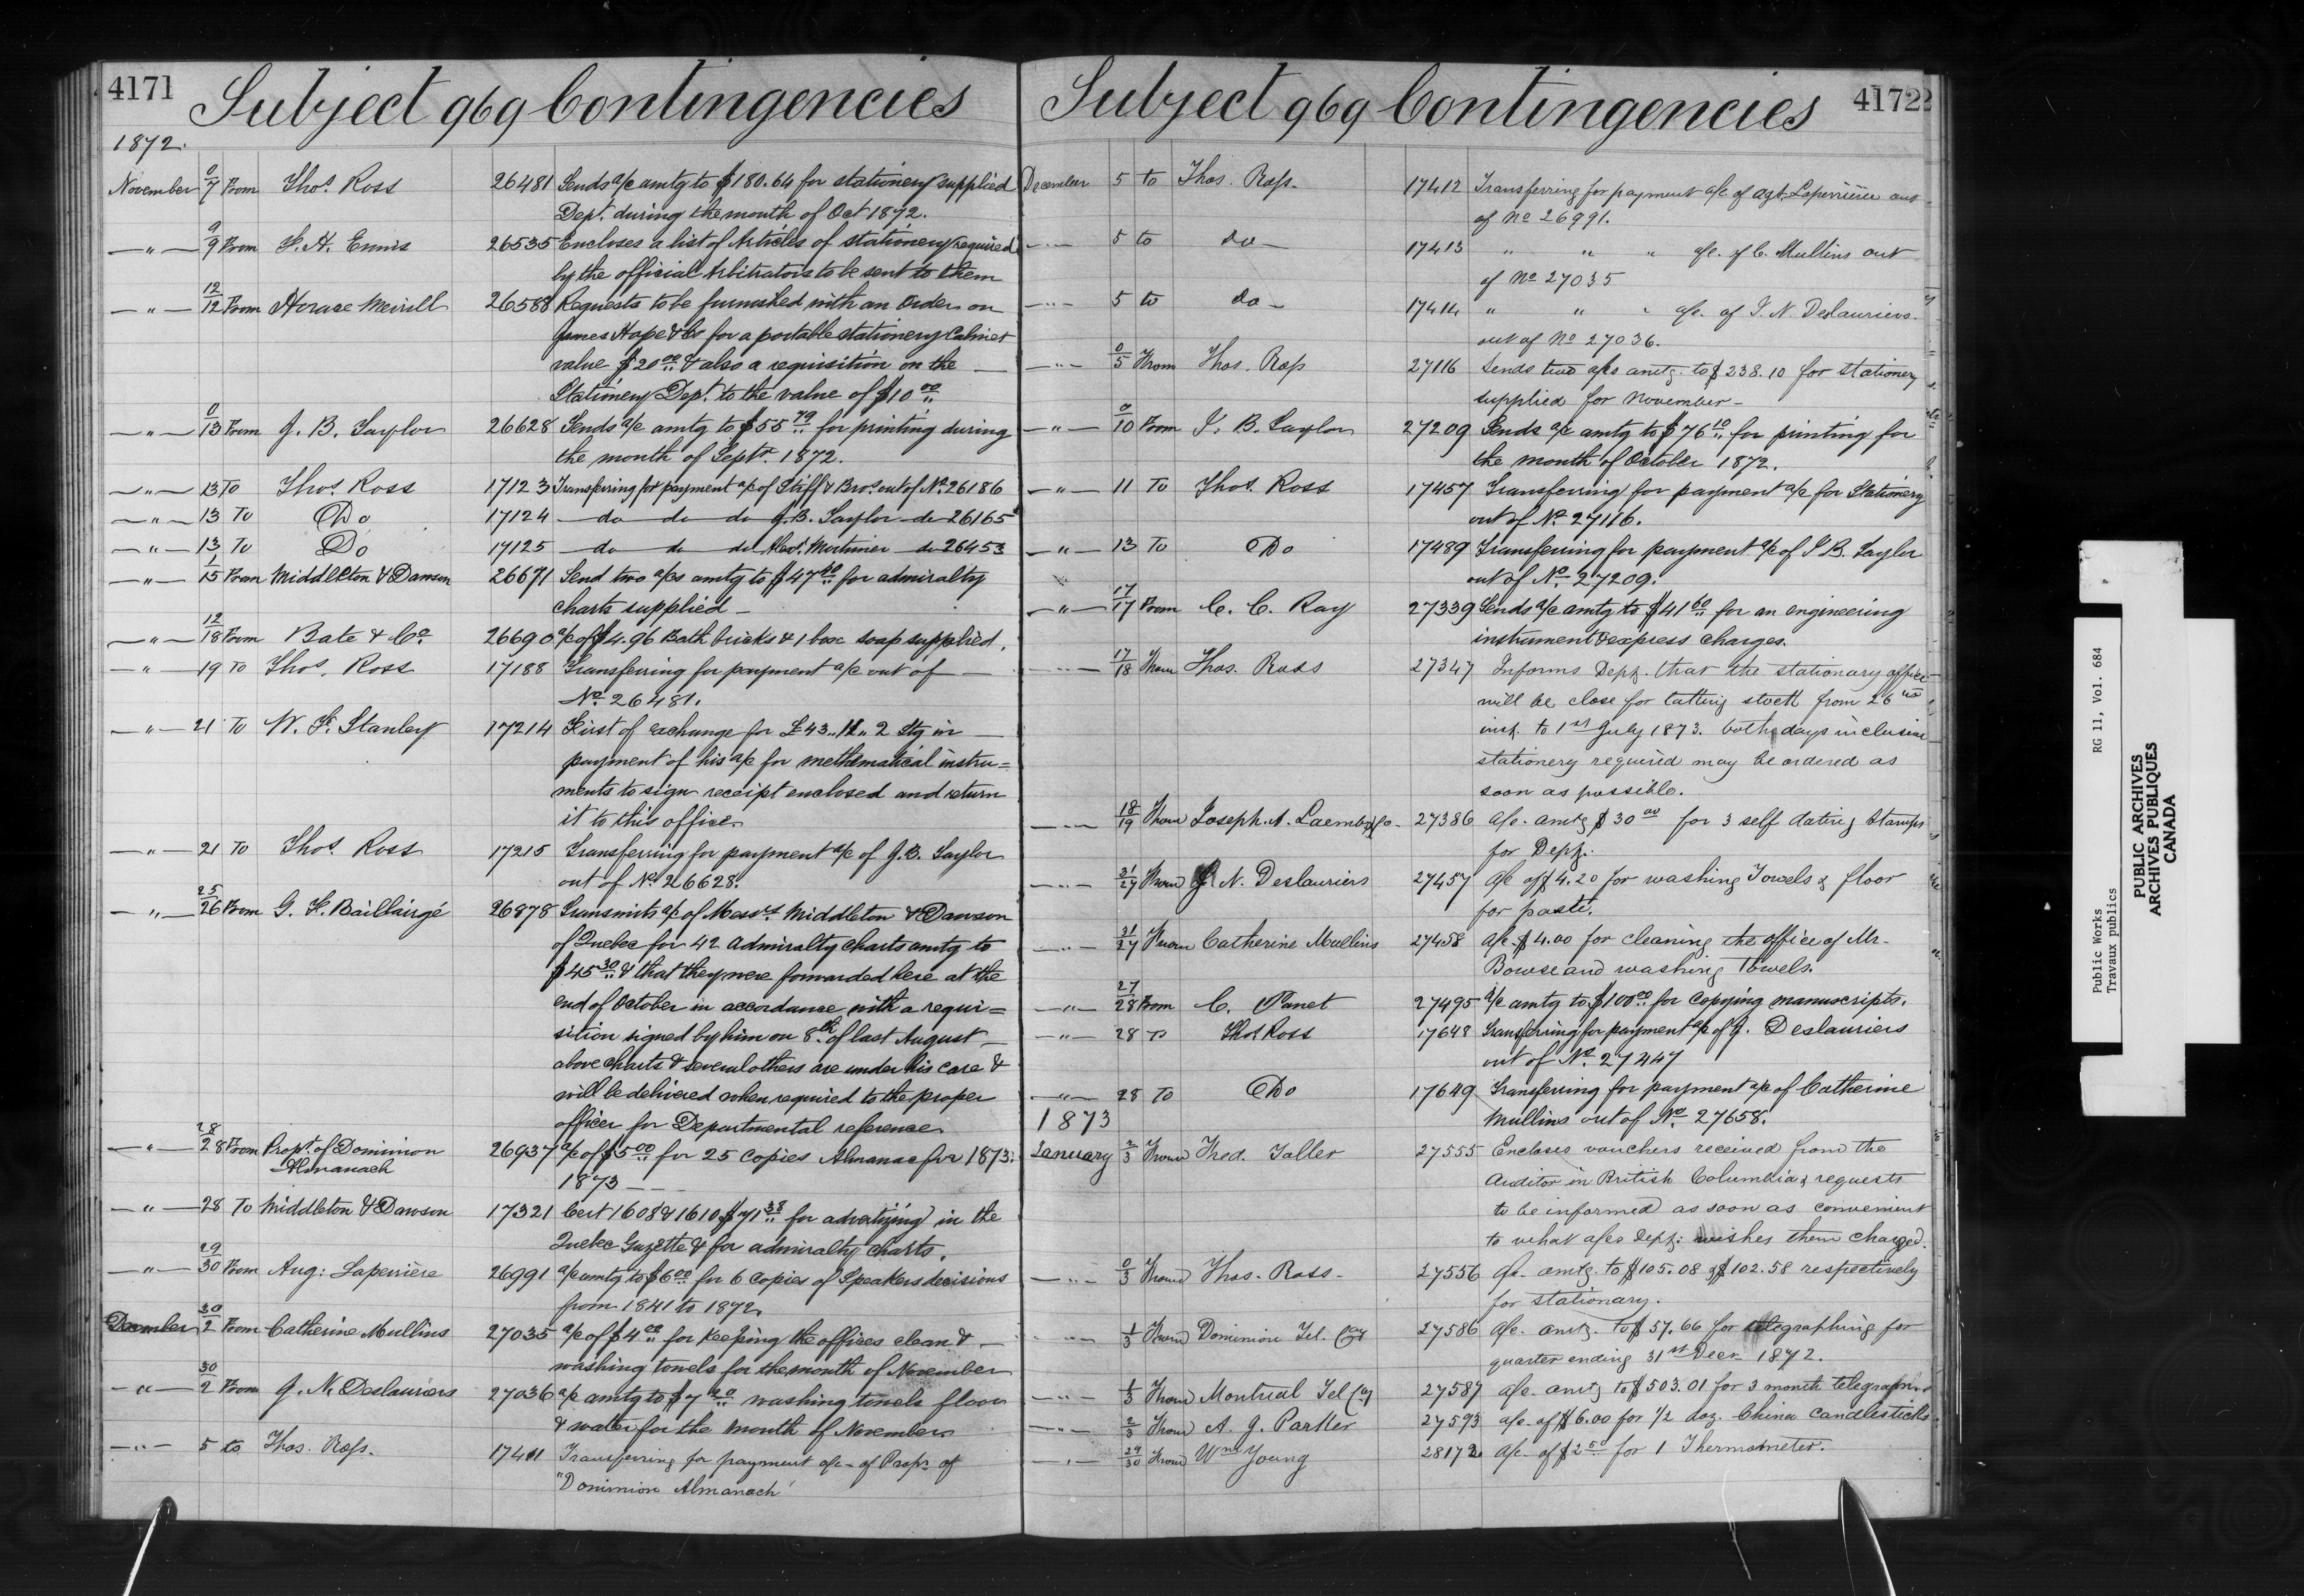 4171 Subject 969 Contingencies
1872.
November 0/7 From Thos. Ross 26481 Sends a/c amtg to $180.64 for stationery supplied
Dept. during the month of Oct 1872.
—"— 9/9 From F. H. Ennis 26535 Encloses a list of Articles of stationery required
by the official Arbitrators to be sent to them
—"— 12/12 From Horace Merrill 26588 Requests to be furnished with an Order on
James Hope & Co for a portable stationery Cabinet
value $20.00 & also a requisition on the
Stationery Dept. to the value of $10.00
—"— 0/13 From J. B. Taylor 26628 Sends a/c amtg to $55.79 for printing during
the month of Septr. 1872.
—"— 13 To Thos. Ross 17123 Transferring for payment a/c of Stiff & Bros. out of No. 26186
—"— 13 To Do 17124 —do— do— do J. B. Taylor —do 26165
—"— 13 To Do 17125 —do— do— do Alext. Mortimer —do 26453
—"— 1/15 From Middleton & Dawson 26671 Send two a/cs amtg to $47.40 for admiralty
charts supplied —
—"— 12/18 From Bate & Co. 26690 a/c of $4.96 Bath bricks & 1 box soap supplied.
—"— 19 To Thos. Ross 17188 Transferring for payment a/c out of —
No. 26481.
—"— 21 To W. F. Stanley 17214 First of exchange for £43..11..2 Stg in —
payment of his a/c for methematical instru=
ments to sign receipt enclosed and return
it to this office.
—"— 21 To Thos. Ross 17215 Transferring for payment a/c of J. B. Taylor
out of No. 26628.
—"— 25/26 From G. F. Baillairgé 26878 Transmits a/c of Messrs Middleton & Dawson
of Quebec for 42 Admiralty charts amtg to
$45.30 & that they were forwarded here at the
end of October in accordance with a requi=
sition signed by him on 8th. of last August —
above charts & several others are under his care &
will be delivered when required to the proper
officer for Departmental reference.
—"— 28/28 From Propt. of Dominion 26937 a/c of $5.00 for 25 copies Almanac for 1873.
Almanach
1873 — —
—"— 28 To Middleton & Dawson 17321 Cert 1608 & 1610 $71.38 for advertizing in the
Quebec Gazette & for admiralty charts.
—"— 29/30 From Aug: Laperrière 26991 a/c amtg to $6.00 for 6 copies of Speakers decisions
from 1841 to 1872.
December 30/2 From Catherine Mullins 27035 a/c of $4.00 for keeping the offices clean & —
washing towels for the month of November
—"— 30/2 From J. N. Deslauriers 27036 a/c amtg to $7.20 washing towels floor
& water for the month of November.
—"— 5 to Thos. Ross. 17401 Transferring for payment a/c of Propr of
"Dominion Almanach"
Subject 969 Contingencies 4172
December 5 to Thos. Ross. 17412 Transferring for payment a/c of Agt. Laperrière out
of No 26991.
—"— 5 to do — 17413 " " " a/c. of C. Mullins out
of No 27035
—"— 5 to do — 17414 " " " a/c. of J. N. Deslauriers.
out of No 27036.
—"— 0/5 From Thos. Ross 27116 Sends two a/cs amtg. to $238.10 for stationery
supplied for November —
—"— 0/10 From J. B. Taylor 27209 Sends a/c amtg to $76.10 for printing for
the month of October 1872.
—"— 11 To Thos. Ross 17457 Transferring for payment a/c for Stationery
out of No. 27116.
—"— 13 To Do 17489 Transferring for payment a/c of J B. Taylor
out of No. 27209.
—"— 17/17 From C. C. Ray 27339 Sends a/c amtg to $41.60 for an engineering
instrument & express charges.
—"— 17/18 From Thos. Ross 27347 Informs Dept. that the stationary office
will be close for tatting stock from 26th
inst. to 1st July 1873. both days inclusive
stationery required may be ordered as
soon as possible.
—"— 18/19 From Joseph. A. 27386 a/c. amtg $30.00 for 3 self dating Stamps
for Dept.
—"— 21/27 From J. N. Deslauriers 27457 a/c of $4.20 for washing Towels & floor
for paste.
—"— 21/27 From Catherine Mullins 27458 a/c $4.00 for cleaning the office of Mr.
Bowse and washing Towels.
—"— 27/28 From C. Panet 27495 a/c amtg to $100.00 for copying manuscripts.
—"— 28 To Thos Ross 17648 Transferring for payment a/c of J. Deslauriers
out of No. 27447
—"— 28 To Do 17649 Transferring for payment a/c of Catherine
Mullins out of No. 27658.
1873
January 2/3 From Fred. Toller 27555 Encloses vouchers received from the
Auditor in British Columbia & requests
to be informed as soon as convenient
to what a/cs Dept: wishes them charged.
—"— 0/3 From Thos. Ross — 27556 a/c. amtg. to $105.08 & $102.58 respectively
for stationary.
—"— 1/3 From Dominion Tel. Coy 27586 a/c. amtg. to $57.66 for telegraphing for
quarter ending 31st Decr 1872.
—"— 1/3 From Montreal Tel Coy 27587 a/c. amtg to $503.01 for 3 month telegraphs
—"— 2/3 From A. J. Parker 27593 a/c. of $6.00 for 1/2 doz. China Candlesticks
—"— 29/30 From Wm Young 28172 a/c. of $2.50 for 1 Thermometer.
Public Works RG 11, Vol. 684
Travaux publics
PUBLIC ARCHIVES
ARCHIVES PUBLIQUES
CANADA